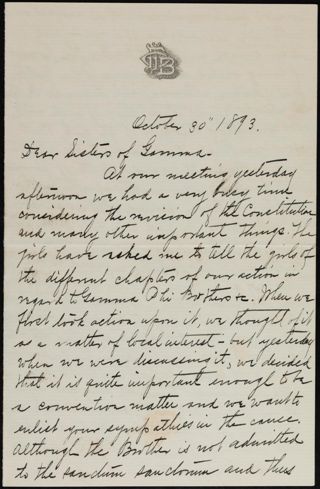 October 30" 1893.
Dear Sisters of Gamma -
At our meeting yesterday
afternoon we had a very busy time
considering the revision of the Constitution
and many other important things. The
girls have asked me to tell the girls of
the different chapters of our action in
regard to Gamma Phi Brothers &c. When we
first took action upon it, we thought of it
as a matter of local interest - but yesterday
when we were discussing it, we decided
that it is quite important enough to be
a convention matter and we want to
enlist your sympathies in the cause.
Although the Brother is not admitted
to the sanctum sanctorum and thus